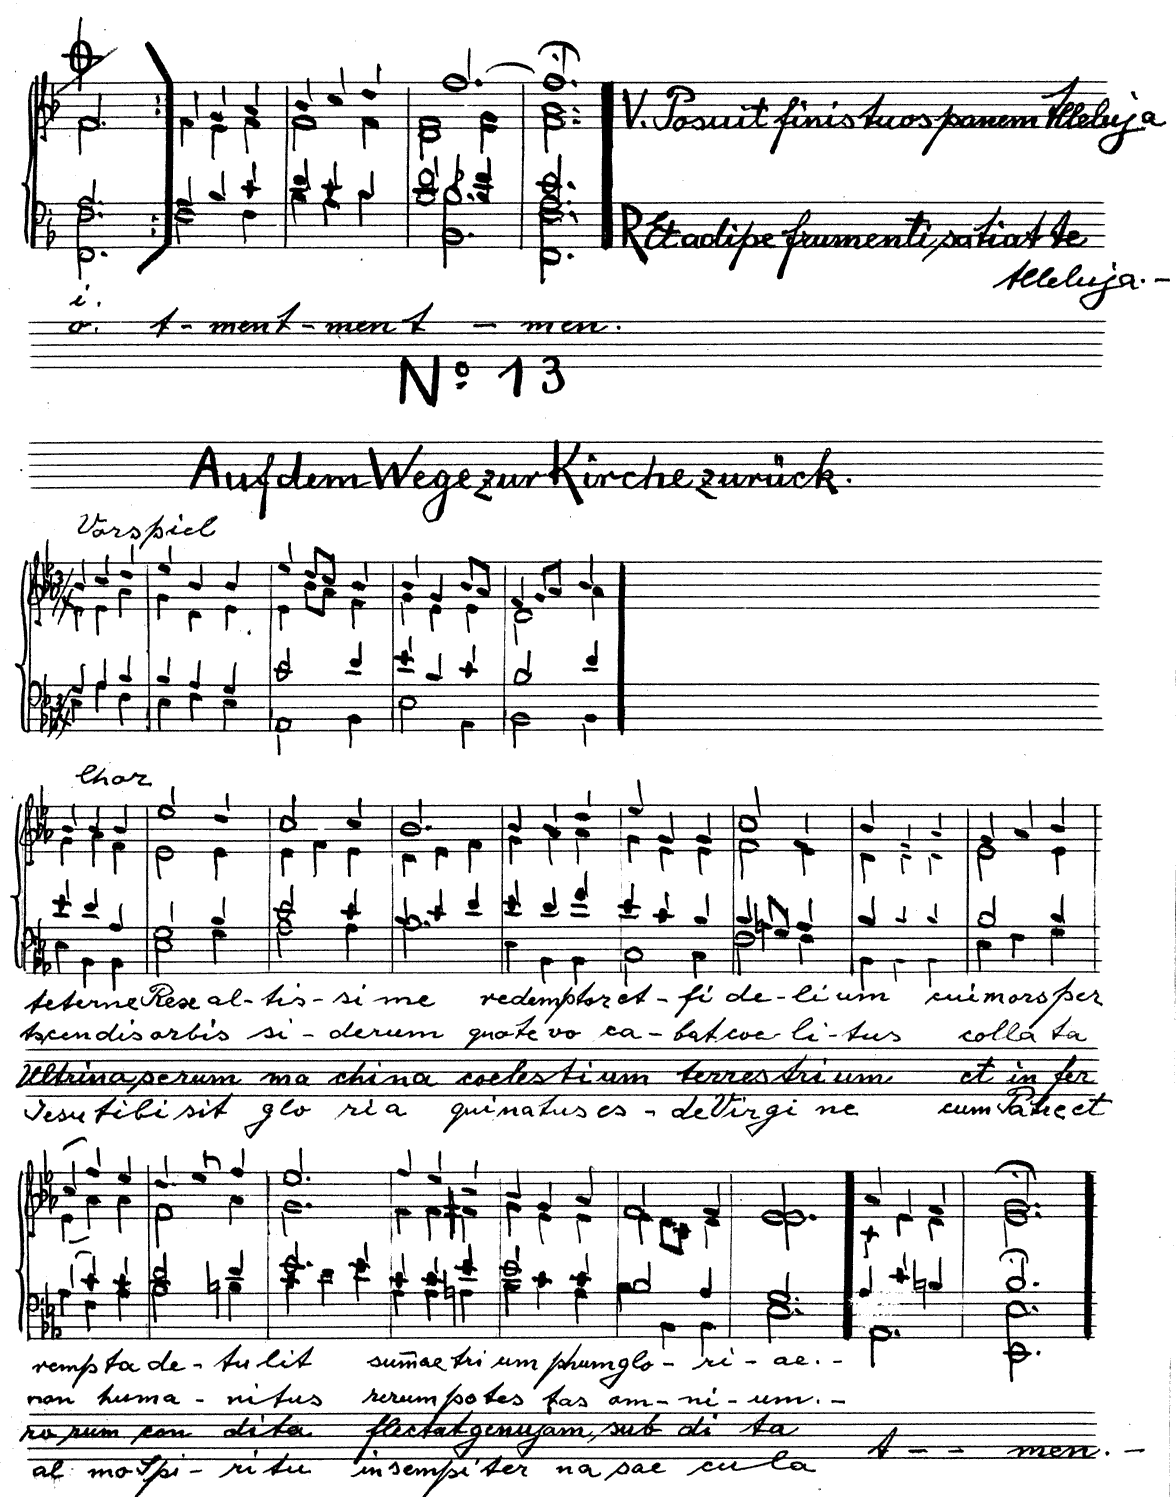 V. Posuit finis tuos panem Alleluja
R Et adipe frumenti, satiat te
Alleluja. -
i.
o. A - ment - ment A - men.
Nº 13
Auf dem Wege zur Kirche zurück.
Vorspiel
Chor
Aeterne Rex al - tis - si me redemptor et - fi de - li um cui mors per
Ascendis orbis si - derum quo te vo ca - bat coe li - tus colla ta
Ut trina, rerum ma china coelestium terrestrium et in fer
Jesu tibi sit glo ria qui natus es - de Virgi ne cum Patre et
rempta de - tu lit summae tri um phum glo - ri - ae. -
non huma - nitus rerum potes tas om - ni - um. -
no rum con dita flectat genu jam, sub di ta
al mo Spi - ri tu in sempiter na sae cu la
A - - men. -